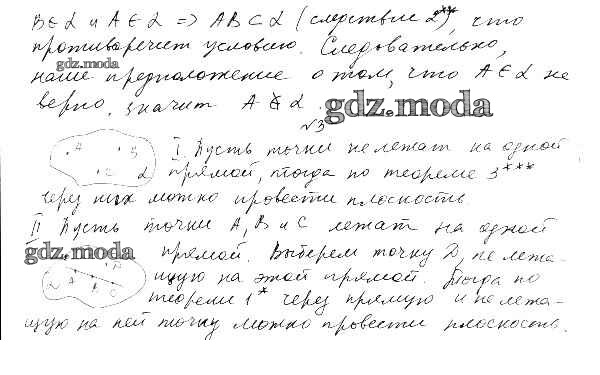 B ∈ α и A ∈ α => AB ⊂ α (следствие 2**), что
противоречит условию. Следовательно,
наше предположение о том, что A ∈ α не
верно, значит A ∉ α.
gdz.moda
gdz.moda
№3
I Пусть точки не лежат на одной
прямой, тогда по теореме 3***
через них можно провести плоскость.
A B C α
II Пусть точки A, B и C лежат на одной
gdz.moda
прямой. Выберем точку D, не лежа-
щую на этой прямой. Тогда по
α A B C D
теореме 1* через прямую и не лежа-
щую на ней точку можно провести плоскость.